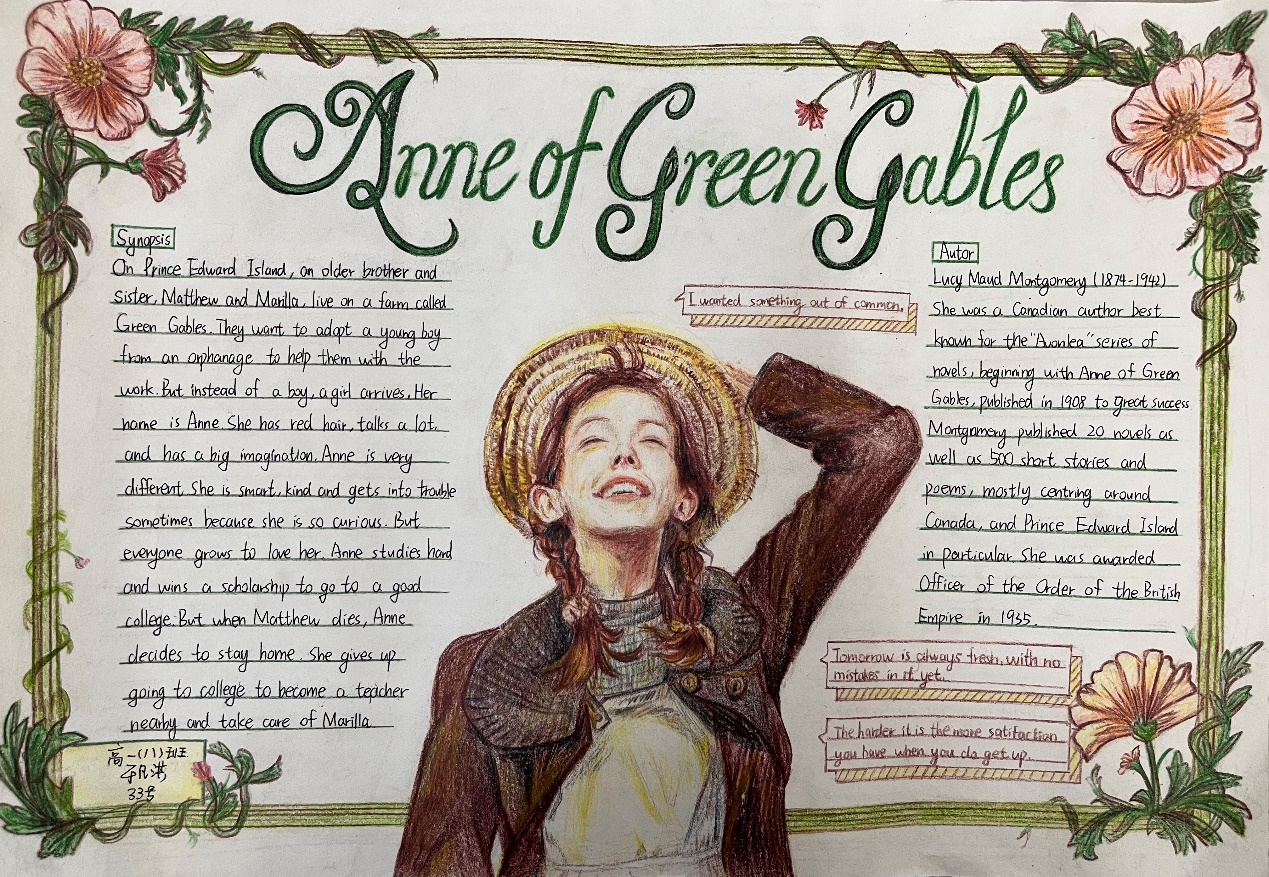 Anne of Green Gables
Synopsis
On Prince Edward Island, an older brother and
sister, Matthew and Marilla, live on a farm called
Green Gables. They want to adopt a young boy
from an orphanage to help them with the
work. But instead of a boy, a girl arrives. Her
name is Anne. She has red hair, talks a lot,
and has a big imagination. Anne is very
different. She is smart, kind and gets into trouble
sometimes because she is so curious. But
everyone grows to love her. Anne studies hard
and wins a scholarship to go to a good
college. But when Matthew dies, Anne
decides to stay home. She gives up
going to college to become a teacher
nearby and take care of Marilla
高一(八)班
33号
I wanted something out of common.
Autor
Lucy Maud Montgomery (1874-1942)
She was a Canadian author best
known for the "Avonlea" series of
novels, beginning with Anne of Green
Gables, published in 1908 to great success
Montgomery published 20 novels as
well as 500 short stories and
poems, mostly centring around
Canada, and Prince Edward Island
in particular. She was awarded
Officer of the Order of the British
Empire in 1935.
Tomorrow is always fresh, with no
mistakes in it yet.
The harder it is the more satifaction
you have when you do get up.